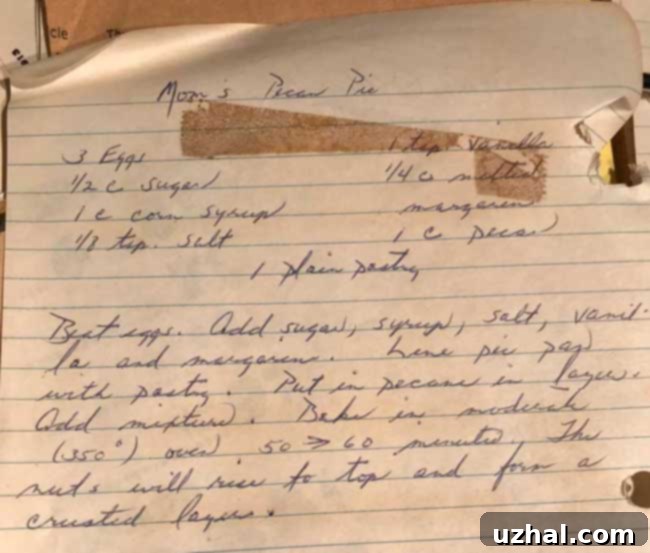 cle
Mom's Pecan Pie
3 Eggs
1/2 c sugar
1 c corn syrup
1/8 tsp. salt
1 tsp vanilla
1/4 c melted
margaren
1 c pecan
1 plain pastry
Beat eggs. Add sugar, syrup, salt, vanil-
la and margaren. Line pie pan
with pastry. Put in pecans in layer.
Add mixture. Bake in moderate
(350°) oven 50 → 60 minutes. The
nuts will rise to top and form a
crusted layer.
uzhal.com